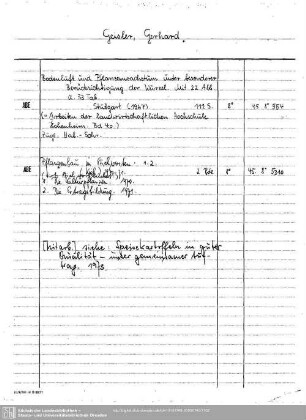 Geisler, Gerhard.
Bodenluft und Pflanzenwachstum unter besonderer
Berücksichtigung der Wurzel. Mit 22 Abb.
u. 33 Tab.
ABE Stuttgart (1967) 111 S. 8° 45. 8° 964
(= Arbeiten der Landwirtschaftlichen Hochschule
Hohenheim. Bd 40.)
Zugl. Hab.-Schr.
ABE Pflanzenbau in Stichworten. 1.2. 2 Bde 8° 45. 8°
1. Die Kulturpflanzen. 1970.
2. Die Ertragsbildung. 1971.
[Mitarb.] siehe: Speisekartoffeln in guter
Qualität – unser gemeinsamer Auf-
trag. 1973.